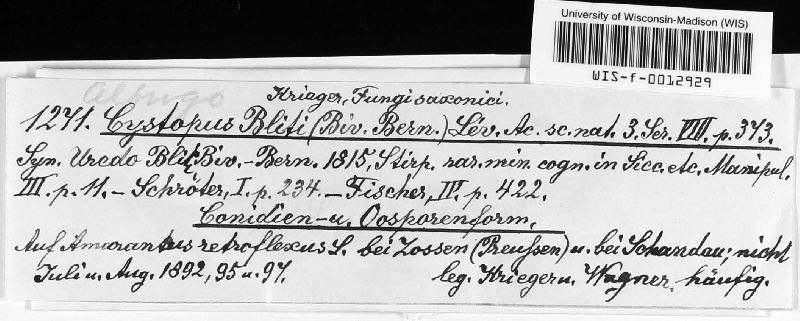 University of Wisconsin-Madison (WIS)
WIS-f-0012929
Albugo
Krieger, Fungi saxonici.
1271. Cystopus Bliti (Biv. Bern.) Lév. Ac. sc. nat. 3. Ser. VIII. p. 373.
Syn. Uredo Bliti Biv.-Bern. 1815, Stirp. rar. min. cogn. in Sicc. etc. Manipul.
III. p. 11. – Schröter, I. p. 234. – Fischer, IV. p. 422.
Conidien- u. Oosporenform.
Auf Amarantus retroflexus L. bei Zossen (Preussen) u. bei Schandau; nicht
Juli u. Aug. 1892, 95 u. 97. leg. Krieger u. Wagner. häufig.